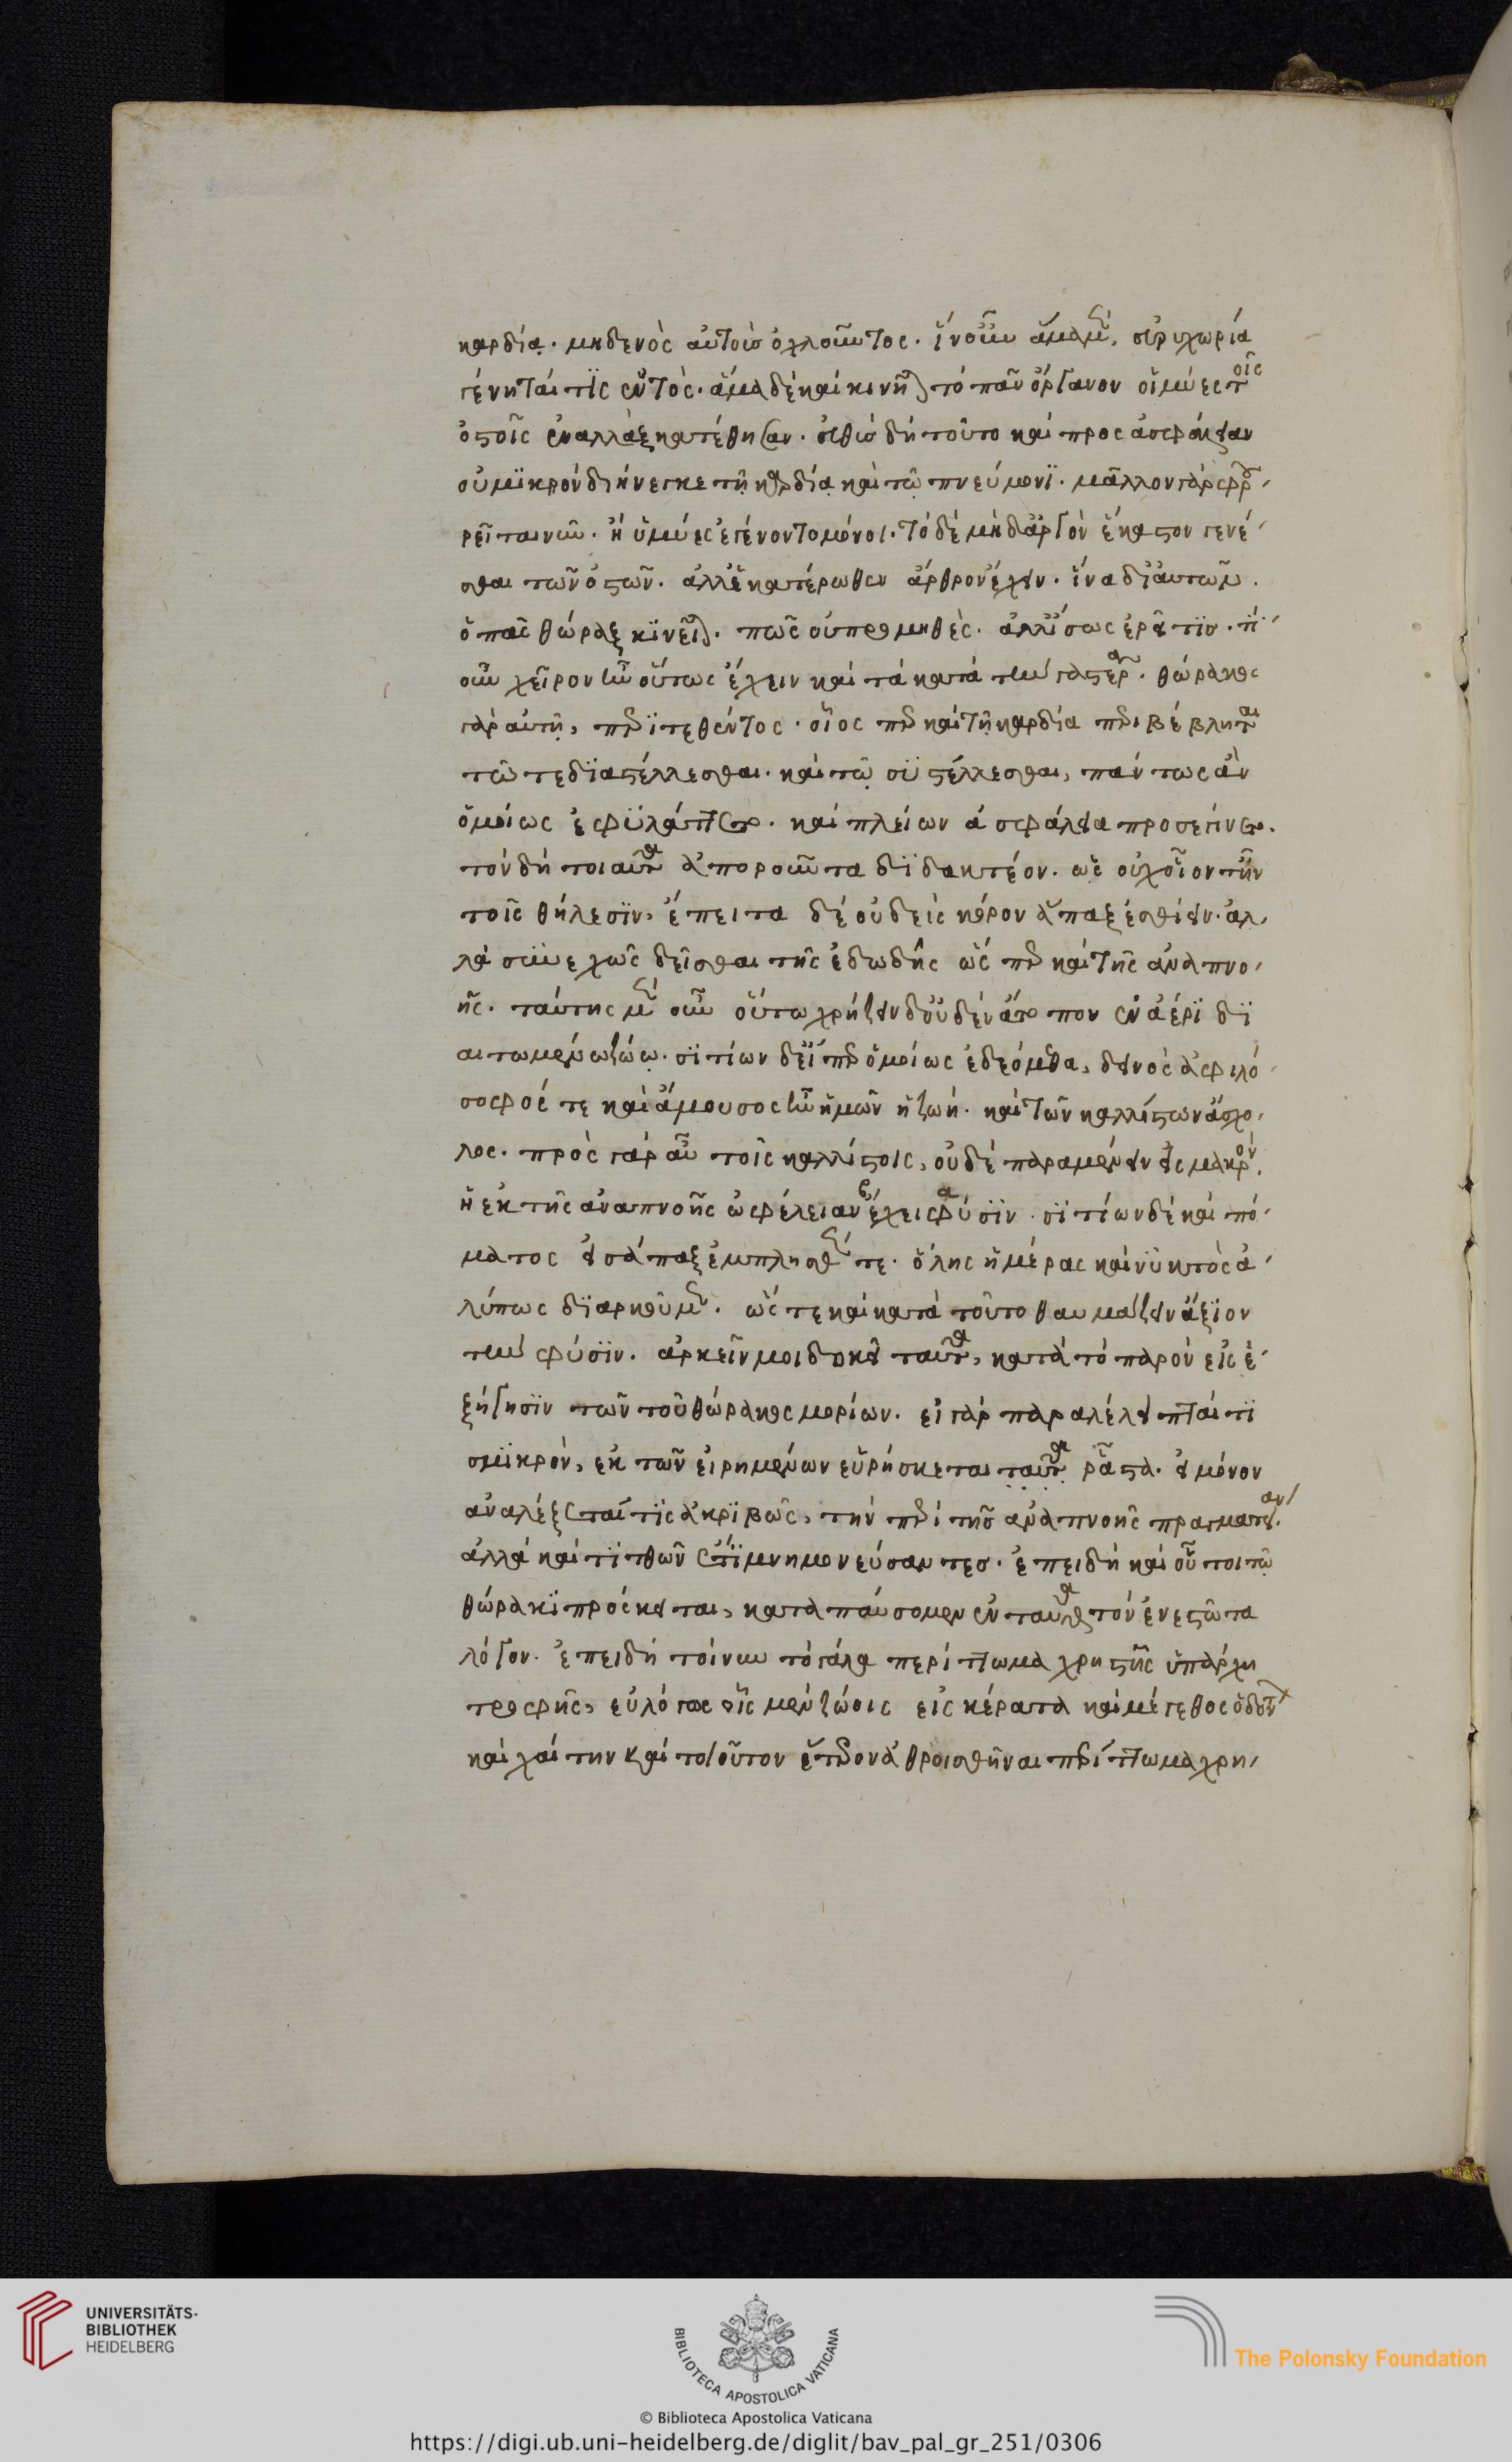 καρδία. μηδενὸς αὐτοῖσ ὀχλοῦντος. ἵν οὖν ἅμα μὲν, εὐρυχωρία
γένηταί τϊς ἐντὸς. ἅμα δὲ καὶ κινῆται τὸ πᾶν ὄργανον οἱ μύες τοῖς
ὀστοῖς ἐναλλὰξ κατέθησαν. εὐθὺσ δὴ τοῦτο καὶ προς ἀσφάλειαν
οὐ μϊκρὸν διήνεγκε τῆ καρδία καὶ τῷ πνεύμονϊ. μᾶλλον γὰρ ἐφρου
ρεῖτο νῦν. ἢ εἰ μύες ἐγένοντο μόνοι. τὸ δὲ μὴδ ἀργὸν ἕκαστον γενέ
σθαι τῶν ὀστῶν. ἀλλ ἑκατέρωθεν ἄρθρον ἔχειν. ἵνα δι αὐτῶν.
ὁ πᾶς θώραξ κϊνεῖται. πῶς οὐ προμηθὲς. ἀλλ ἴσως ἐρεῖ τϊσ. τί
οὖν χεῖρον ἦν οὕτως ἔχειν καὶ τὰ κατὰ τὴν γαστέρα. θώρακος
γὰρ αὐτῆ, περϊτεθέντος. οἷος περ καὶ τῆ καρδία περιβέβληται
τῶ τε δϊαστέλλεσθαι. καὶ τῷ συστέλλεσθαι, πάντως ἂν
ὁμοίως ἐφϋλάττετο. καὶ πλείων ἀσφάλεια προσεγίνετο.
τὸν δὴ τοιαῦτα ἀποροῦντα δϊδακτέον. ὡς οὐχ οἷον τ ἦν
τοῖς θήλεσϊν, ἔπειτα δὲ οὐδεὶς κόρον ἅπαξ ἐσθίειν. ἀλ
λὰ συνεχῶς δεῖσθαι τῆς ἐδωδῆς ὥς περ καὶ τῆς ἀναπνο
ῆς. ταύτης μὲν οὖν οὕτω χρήζειν δ οὐδὲν ἄτοπον ἐν ἀέρϊ δϊ
αιτωμένω ζώω. σϊτίων δ εἴπερ ὁμοίως ἐδεόμεθα, δεινὸς ἀφιλό
σοφός τε καὶ ἄμουσος ἦν ἡμῶν ἡ ζωή. καὶ τῶν καλλίστων ἄσχο
λος. πρὸς γὰρ αὖ τοῖς καλλίστοις, οὐδὲ παραμένειν εἰς μακρὸν.
ἡ ἐκ τῆς ἀναπνοῆς ὠφέλειαν ἔχει φύσϊν. σϊτίων δὲ καὶ πό
ματος εἰσάπαξ ἐμπλησθέντες. ὅλης ἡμέρας καὶ νϋκτὸς ἀ
λύπως δϊαρκοῦμεν. ὥς τε καὶ κατὰ τοῦτο θαυμάζειν ἄξϊον
τὴν φύσϊν. ἀρκεῖν μοι δοκεῖ ταῦτα, κατὰ τὸ παρὸν εἰς ἐ
ξήγησϊν τῶν τοῦ θώρακος μορίων. εἰ γὰρ παραλέλειπταί τϊ
σμϊκρὸν, ἐκ τῶν εἰρημένων εὑρήσκεται ταῦτα ῥᾶστα. εἰ μόνον
ἀναλέξεταί τϊς ἀκρϊβῶς, τὴν περὶ τῆσ ἀναπνοῆς πραγματείαν
ἀλλὰ καὶ τϊτθῶν ἔτϊ μνημονεύσαντεσ. ἐπειδὴ καὶ οὗτοι τῷ
θώρακϊ πρόσκεινται, καταπαύσομεν ἐνταῦθα τὸν ἐνεστῶτα
λόγον. ἐπειδὴ τοίνυν τὸ γάλα περίττωμα χρηστῆς ὑπάρχει
τροφῆς, εὐλόγως οἷς μὲν ζώοις εἰς κέρατα καὶ μέγεθος ὀδόντων
καὶ χαίτην καὶ τοιοῦτον ἕτερον ἀθροισθῆναι περίττωμα χρη
UNIVERSITÄTS-
BIBLIOTHEK
HEIDELBERG
BIBLIOTECA APOSTOLICA VATICANA
The Polonsky Foundation
© Biblioteca Apostolica Vaticana
https://digi.ub.uni-heidelberg.de/diglit/bav_pal_gr_251/0306